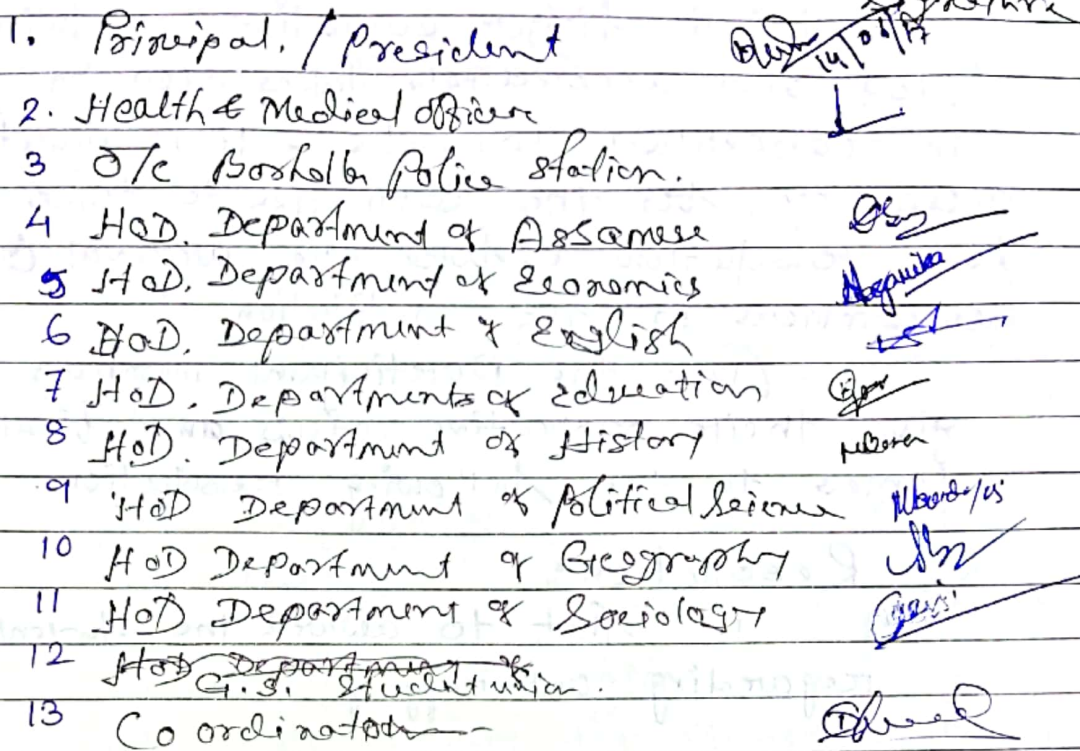 Signature
1. Principal. / President 14/06/17
2. Health & Medical officer
3 O/c Borholla Police station.
4 HOD. Department of Assamese
5 HOD. Department of Economics
6 HOD. Department of English
7 HOD. Departments of Education
8 HOD. Department of History
9 HOD Department of Political Science
10 HOD Department of Geography
11 HOD Department of Sociology
12 HOD Department of
G.S. Student union.
13 Coordinator